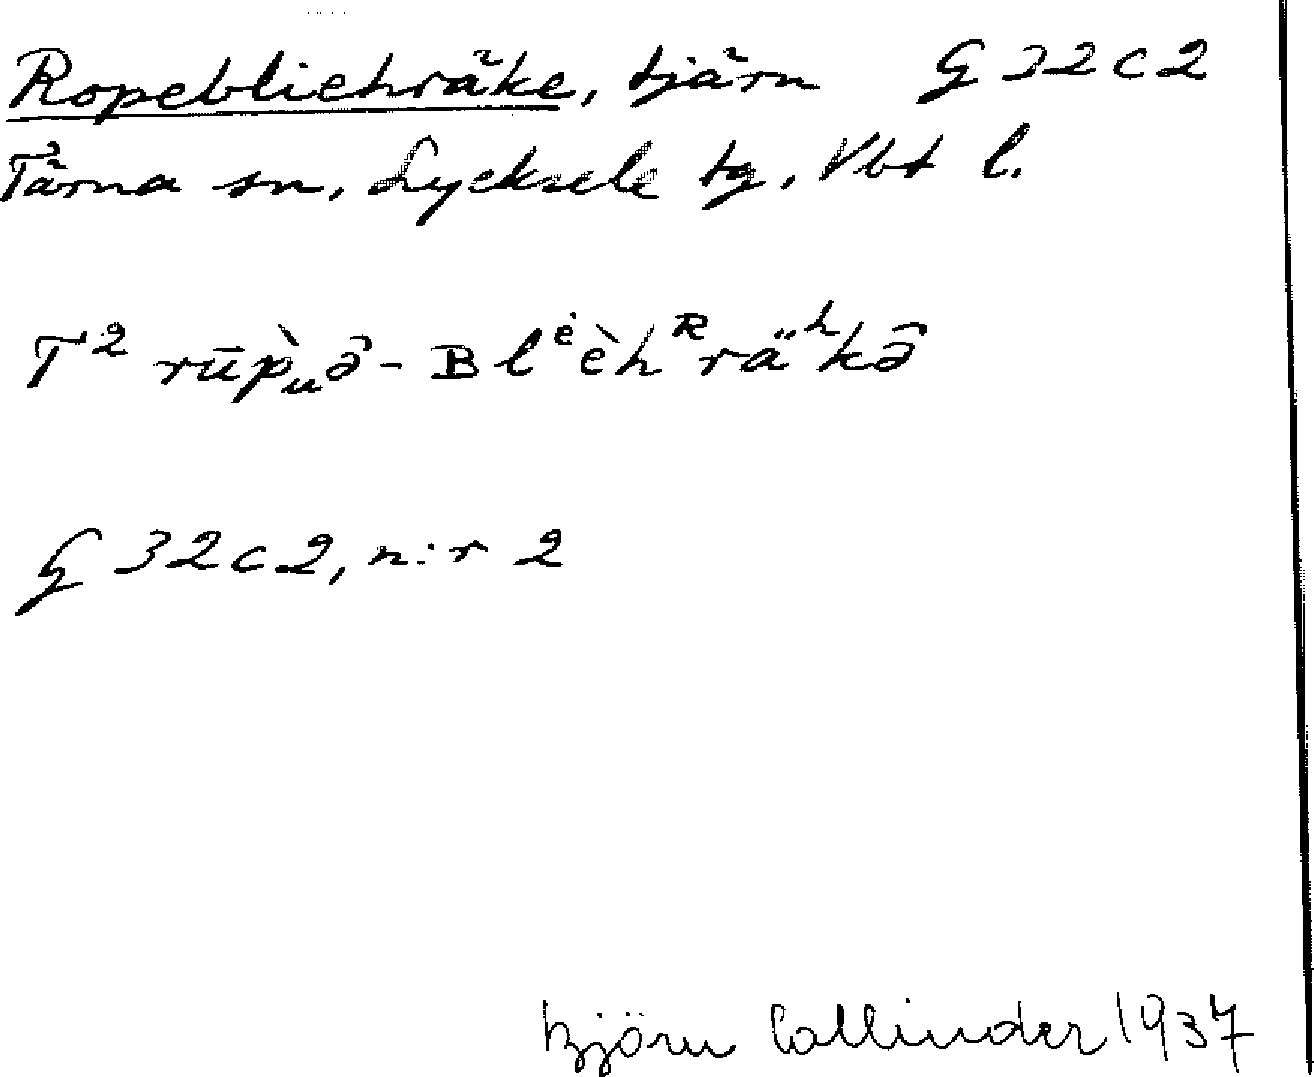 Ropebliehräke, tjärn G 32 c 2
Tärna sn, Lycksele tg, Vbt l.
T² rūp̀ᵤə̂ - ʙlᵉ̇èhᴿräʰkə̂
G 32 c 2, n:r 2
Björn Collinder 1937